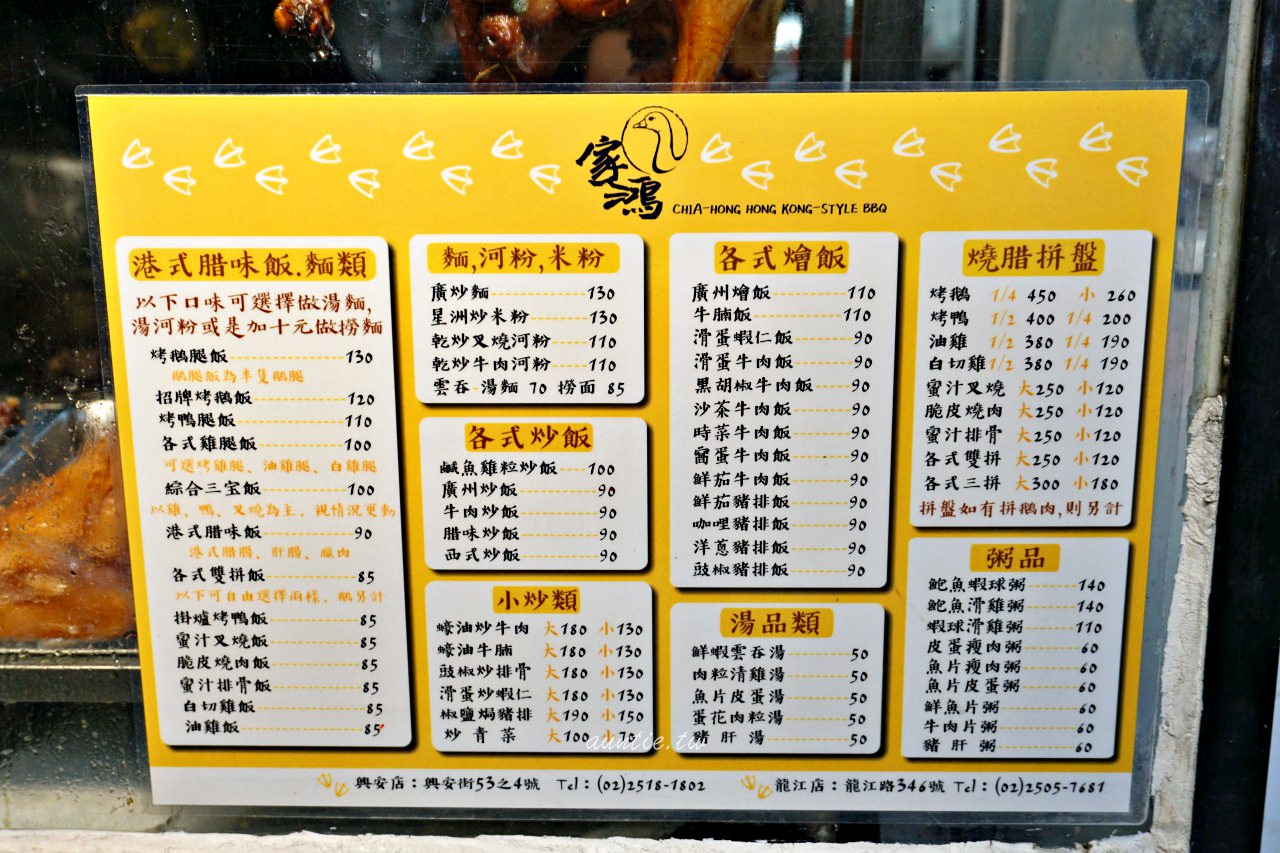 家鴻
CHIA-HONG HONG KONG-STYLE BBQ
港式腊味飯.麵類
以下口味可選擇做湯麵,
湯河粉或是加十元做撈麵
烤鵝腿飯 130
鵝腿飯為半隻鵝腿
招牌烤鵝飯 120
烤鴨腿飯 110
各式雞腿飯 100
可選烤雞腿、油雞腿、白雞腿
綜合三宝飯 100
以雞、鴨、叉燒為主,視情況更動
港式腊味飯 90
港式腊腸、肝腸、臘肉
各式雙拼飯 85
以下可自由選擇兩樣,鵝另計
掛爐烤鴨飯 85
蜜汁叉燒飯 85
脆皮燒肉飯 85
蜜汁排骨飯 85
白切雞飯 85
油雞飯 85
麵,河粉,米粉
廣炒麵 130
星洲炒米粉 130
乾炒叉燒河粉 110
乾炒牛肉河粉 110
雲吞 湯麵 70 撈面 85
各式炒飯
鹹魚雞粒炒飯 100
廣州炒飯 90
牛肉炒飯 90
腊味炒飯 90
西式炒飯 90
小炒類
蠔油炒牛肉 大180 小130
蠔油牛腩 大180 小130
豉椒炒排骨 大180 小130
滑蛋炒蝦仁 大180 小130
椒鹽焗豬排 大190 小150
炒青菜 大100 小70
各式燴飯
廣州燴飯 110
牛腩飯 110
滑蛋蝦仁飯 90
滑蛋牛肉飯 90
黑胡椒牛肉飯 90
沙茶牛肉飯 90
時菜牛肉飯 90
窩蛋牛肉飯 90
鮮茄牛肉飯 90
鮮茄豬排飯 90
咖哩豬排飯 90
洋蔥豬排飯 90
豉椒豬排飯 90
湯品類
鮮蝦雲吞湯 50
肉粒清雞湯 50
魚片皮蛋湯 50
蛋花肉粒湯 50
豬肝湯 50
燒腊拼盤
烤鵝 1/4 450 小 260
烤鴨 1/2 400 1/4 200
油雞 1/2 380 1/4 190
白切雞 1/2 380 1/4 190
蜜汁叉燒 大250 小120
脆皮燒肉 大250 小120
蜜汁排骨 大250 小120
各式雙拼 大250 小120
各式三拼 大300 小180
拼盤如有拼鵝肉,則另計
粥品
鮑魚蝦球粥 140
鮑魚滑雞粥 140
蝦球滑雞粥 110
皮蛋瘦肉粥 60
魚片瘦肉粥 60
魚片皮蛋粥 60
鮮魚片粥 60
牛肉片粥 60
豬肝粥 60
auntie.tw
興安店:興安街53之4號 Tel:(02)2518-1802
龍江店:龍江路346號 Tel:(02)2505-7681